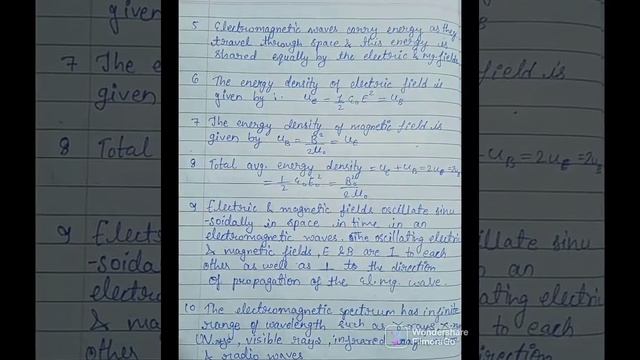 5 Electromagnetic waves carry energy as they
travel through space & this energy is
shared equally by the electric & mg fields
6 The energy density of electric field is
given by :- uE = 1/2 ε0 E² = uB
7 The energy density of magnetic field is
given by uB = B²/2μ0 = uE
8 Total avg. energy density = uE + uB = 2uE = 2uB
= 1/2 ε0 E0² = B0²/2μ0
9 Electric & magnetic fields oscillate sinu
-soidally in space in time in an
electromagnetic waves. The oscillating electric
& magnetic fields, E & B are ⊥ to each
other as well as ⊥ to the direction
of propagation of the el. mg. wave
10 The electromagnetic spectrum has infinite
range of wavelength such as
UV rays, visible rays, infrared
& radio waves
Wondershare
FilmoraGo